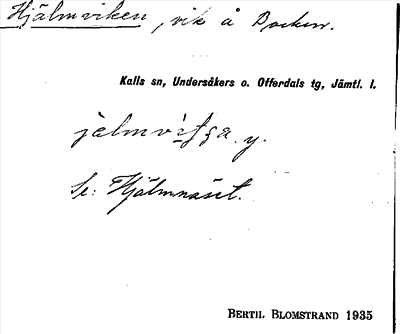 Hjälmviken, vik å Bocken.
Kalls sn, Undersåkers o. Offerdals tg, Jämtl. l.
y.
Se: Hjälmnäset.
BERTIL BLOMSTRAND 1935